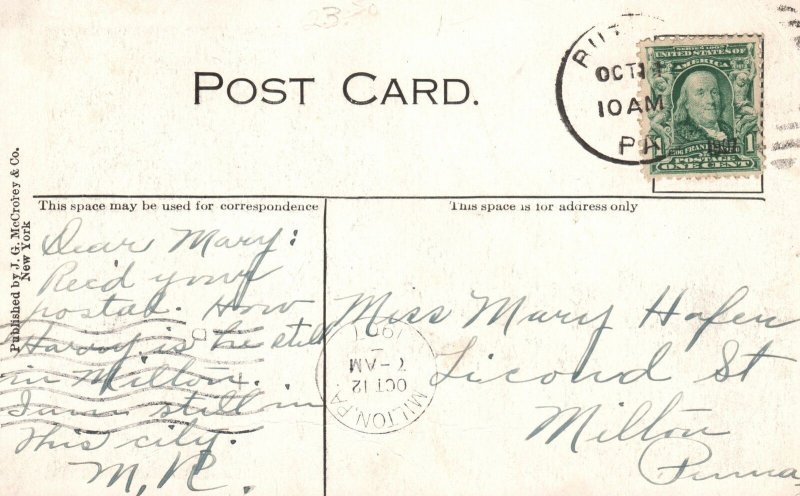 23.50
POST CARD.
OCT 11
10 AM
SERIES 1902
UNITED STATES OF
AMERICA
1
POSTAGE
ONE CENT
Published by J. G. McCrorey & Co.
New York
This space may be used for correspondence
This space is for address only
Dear Mary:
Rec'd your
postal. How
Harvey is he still
in Milton.
I am still in
this city.
M, R.
MILTON, PA.
OCT 12
7-AM
1907
Miss Mary Hafen
Second St
Milton
Penna